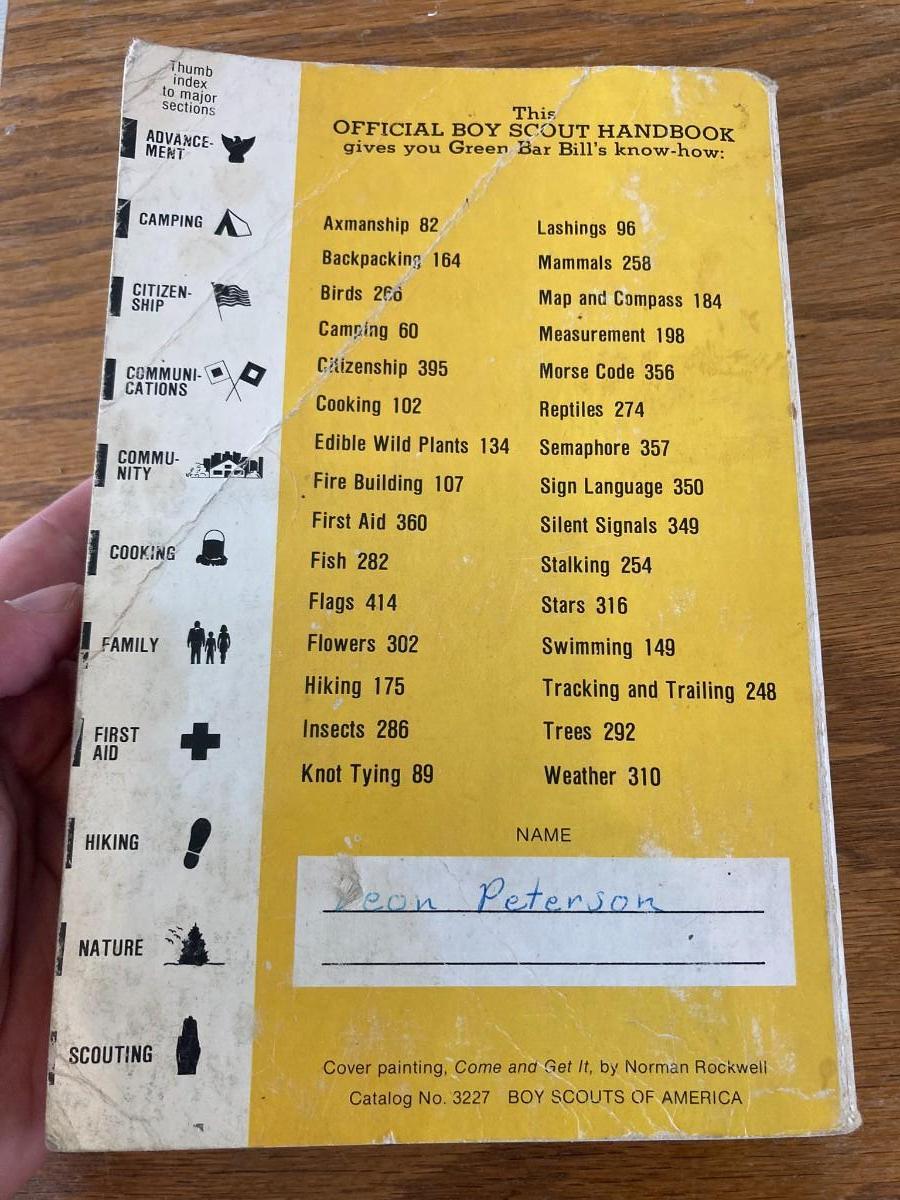 Thumb
index
to major
sections
ADVANCE-
MENT
CAMPING
CITIZEN-
SHIP
COMMUNI-
CATIONS
COMMU-
NITY
COOKING
FAMILY
FIRST
AID
HIKING
NATURE
SCOUTING
This
OFFICIAL BOY SCOUT HANDBOOK
gives you Green Bar Bill's know-how:
Axmanship 82
Backpacking 164
Birds 266
Camping 60
Citizenship 395
Cooking 102
Edible Wild Plants 134
Fire Building 107
First Aid 360
Fish 282
Flags 414
Flowers 302
Hiking 175
Insects 286
Knot Tying 89
Lashings 96
Mammals 258
Map and Compass 184
Measurement 198
Morse Code 356
Reptiles 274
Semaphore 357
Sign Language 350
Silent Signals 349
Stalking 254
Stars 316
Swimming 149
Tracking and Trailing 248
Trees 292
Weather 310
NAME
Peterson
Cover painting, Come and Get It, by Norman Rockwell
Catalog No. 3227 BOY SCOUTS OF AMERICA